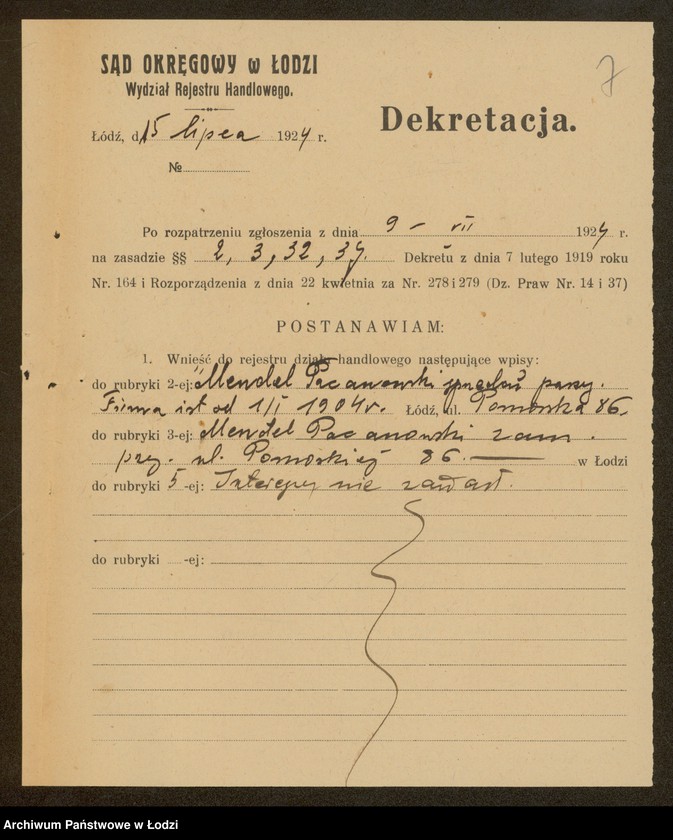 SĄD OKRĘGOWY w ŁODZI
Wydział Rejestru Handlowego.
7
Dekretacja.
Łódź, d. 15 lipca 1924 r.
№
Po rozpatrzeniu zgłoszenia z dnia 9 - VII 1924 r.
na zasadzie §§ 2, 3, 32, 34. Dekretu z dnia 7 lutego 1919 roku
Nr. 164 i Rozporządzenia z dnia 22 kwietnia za Nr. 278 i 279 (Dz. Praw Nr. 14 i 37)
POSTANAWIAM:
1. Wnieść do rejestru działu handlowego następujące wpisy:
do rubryki 2-ej: "Mendel Pacanowski
Firma ist od 1/I 1904 r. Łódź, ul. Pomorska 86.
do rubryki 3-ej: Mendel Pacanowski zam.
przy. ul. Pomorskiej 86. — w Łodzi
do rubryki 5-ej: Intercyzy nie zawarł.
do rubryki -ej:
Archiwum Państwowe w Łodzi